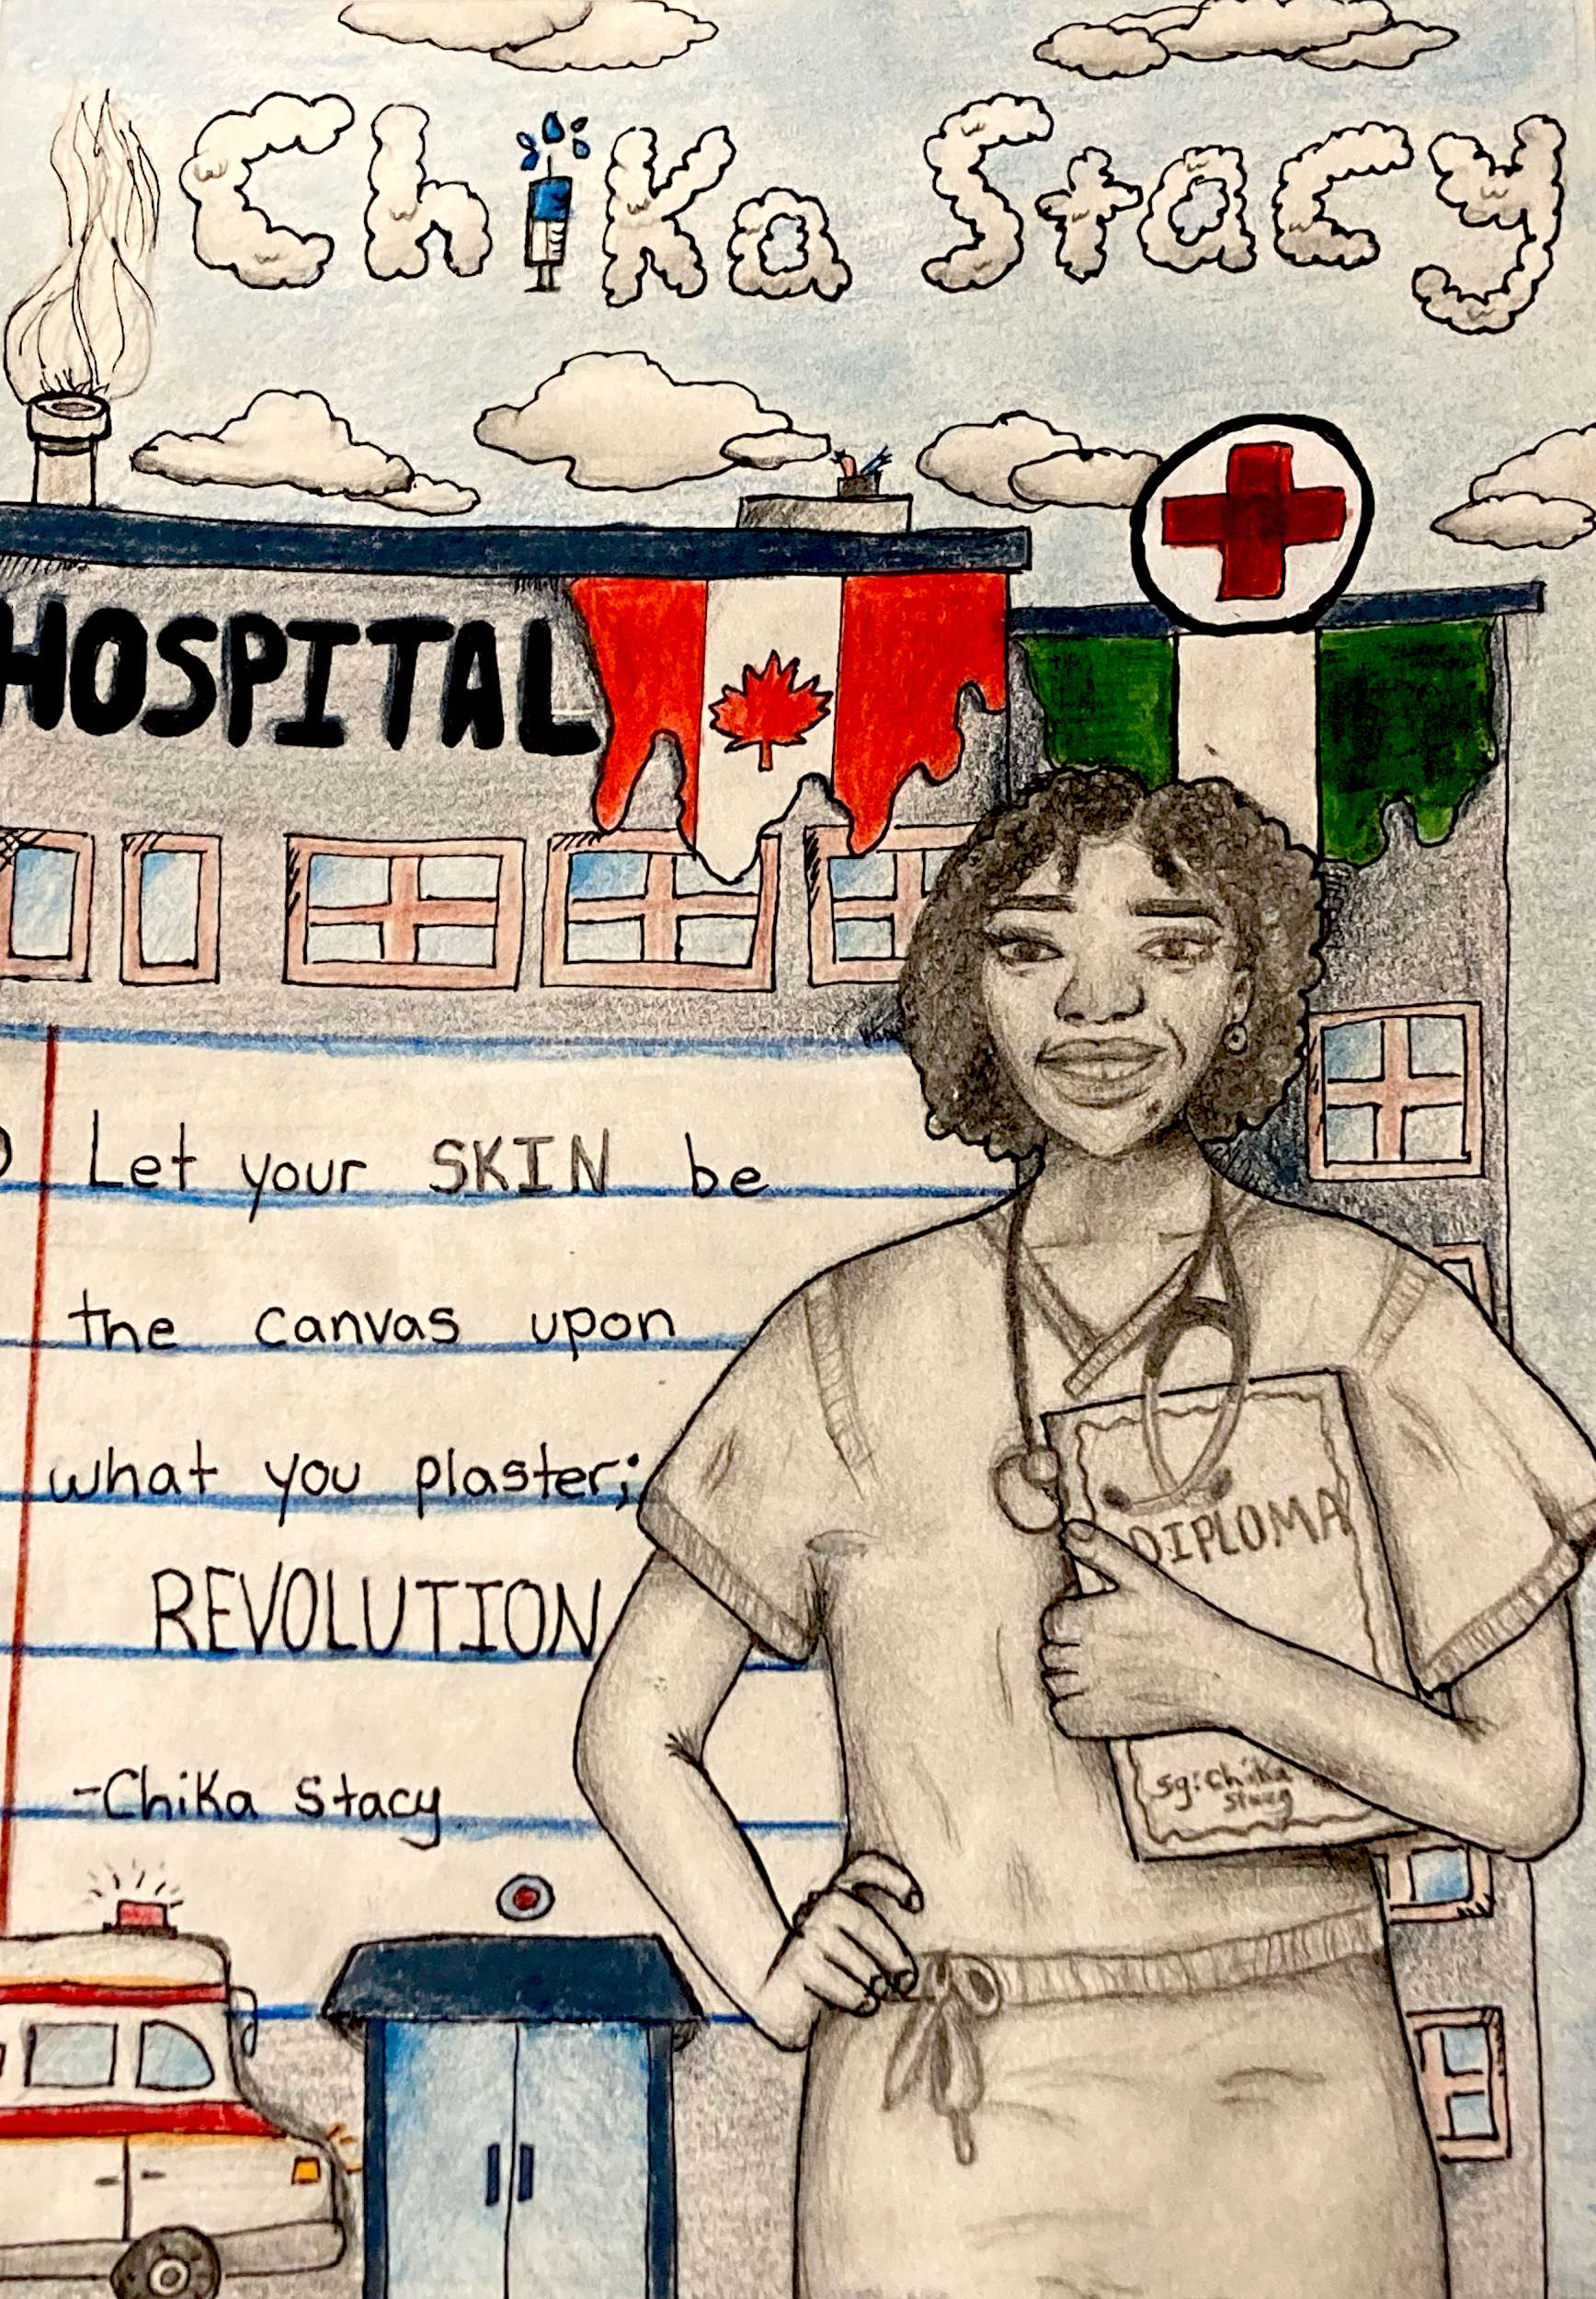 Chika Stacy
HOSPITAL
Let your SKIN be
the canvas upon
what you plaster;
REVOLUTION
-Chika Stacy
DIPLOMA
Sg: Chika
Stacy